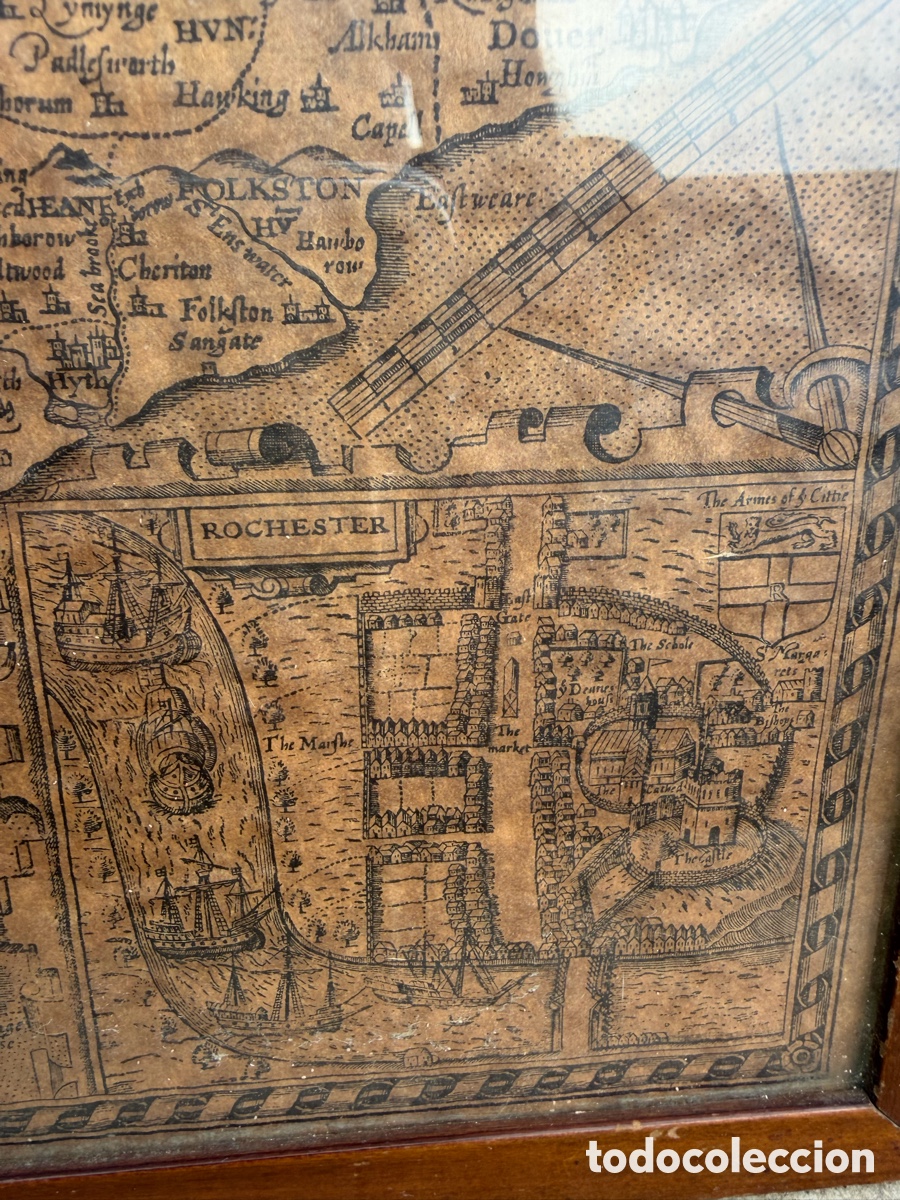 Lymynge
HVN:
Alkham
Douer
Padlesworth
Hougham
Hawking
Capel
FOLKSTON
Eastweare
HV
Hawbo
row
Eastwater
Seabrooke
Cheriton
Folkston
Sangate
Hyth
The Armes of ẏ Cittie
ROCHESTER
R
East
Gate
The Schole
St Marga-
rets
ẏ Deanes
house
The
Bishops
The Marshe
The
market
The
Cathed
The Castle
todocoleccion